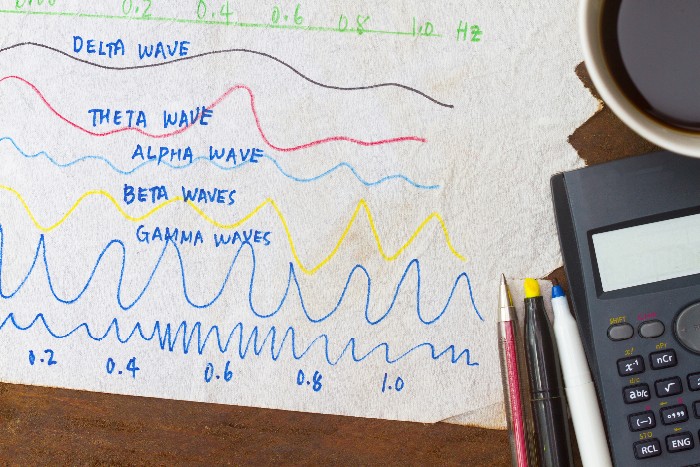 0.2 0.4 0.6 0.8 1.0 Hz
DELTA WAVE
THETA WAVE
ALPHA WAVE
BETA WAVES
GAMMA WAVES
0.2 0.4 0.6 0.8 1.0
SHIFT
x⁻¹ nCr
ab/c √
(—) °’”
STO
RCL ENG